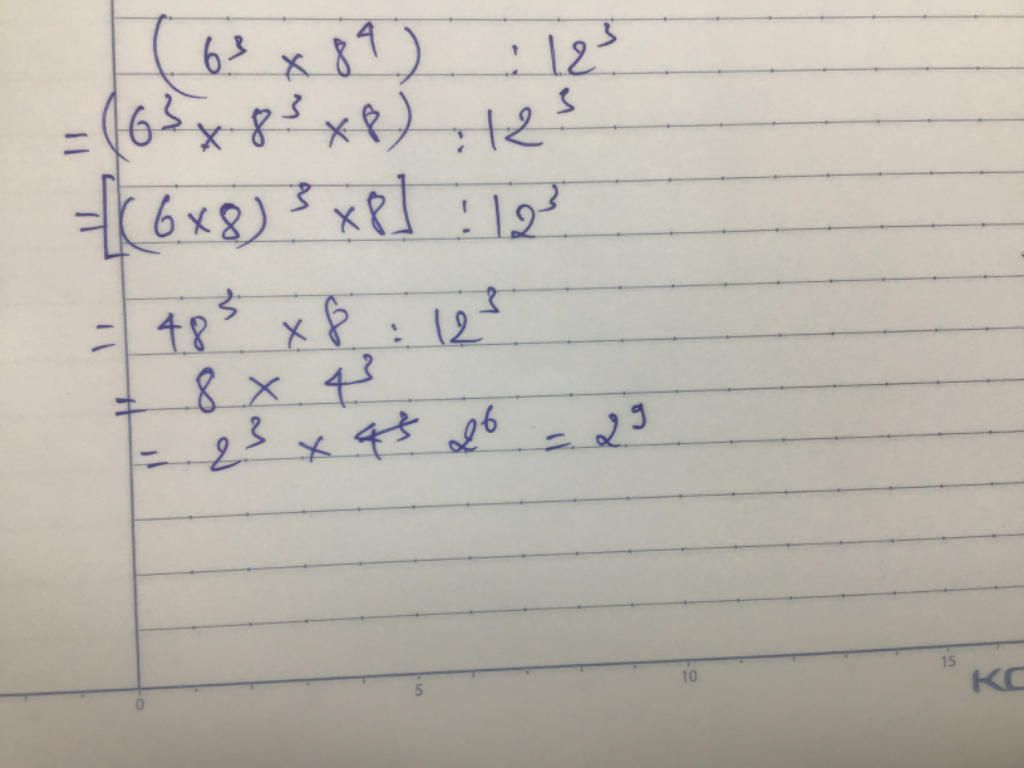 (6³ × 8⁴) : 12³
= (6³ × 8³ × 8) : 12³
= [(6×8)³ ×8] : 12³
= 48³ × 8 : 12³
= 8 × 4³
= 2³ × 4³ 2⁶ = 2⁹
0 5 10 15